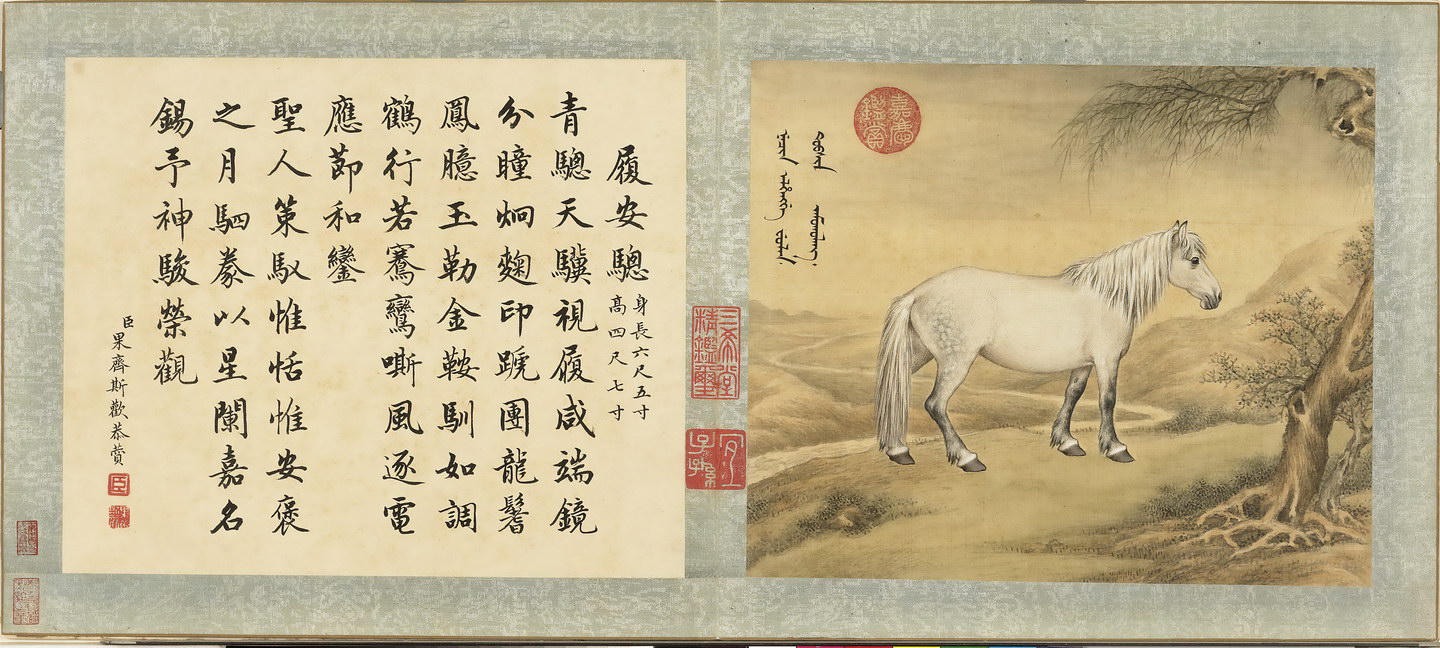 嘉慶鑑賞
三希堂精鑑璽
宜子孫
履安驄
身長六尺五寸
高四尺七寸
青驄天驥視履咸端鏡
分瞳炯麴印蹏團龍鬐
鳳臆玉勒金鞍馴如調
鶴行若鶱鸞嘶風逐電
應節和鑾
聖人策馭惟恬惟安褒
之月駟豢以星闌嘉名
錫予神駿榮觀
臣果齊斯歡恭贊
臣